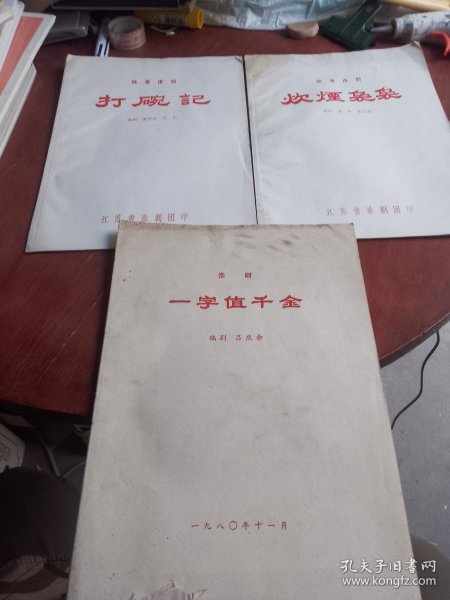 打碗記
江苏省淮剧团印
炊煙裊裊
江苏省淮剧团印
淮剧
一字值千金
编剧 吕庆余
一九八〇年十一月
孔夫子旧书网
www.kongfz.com